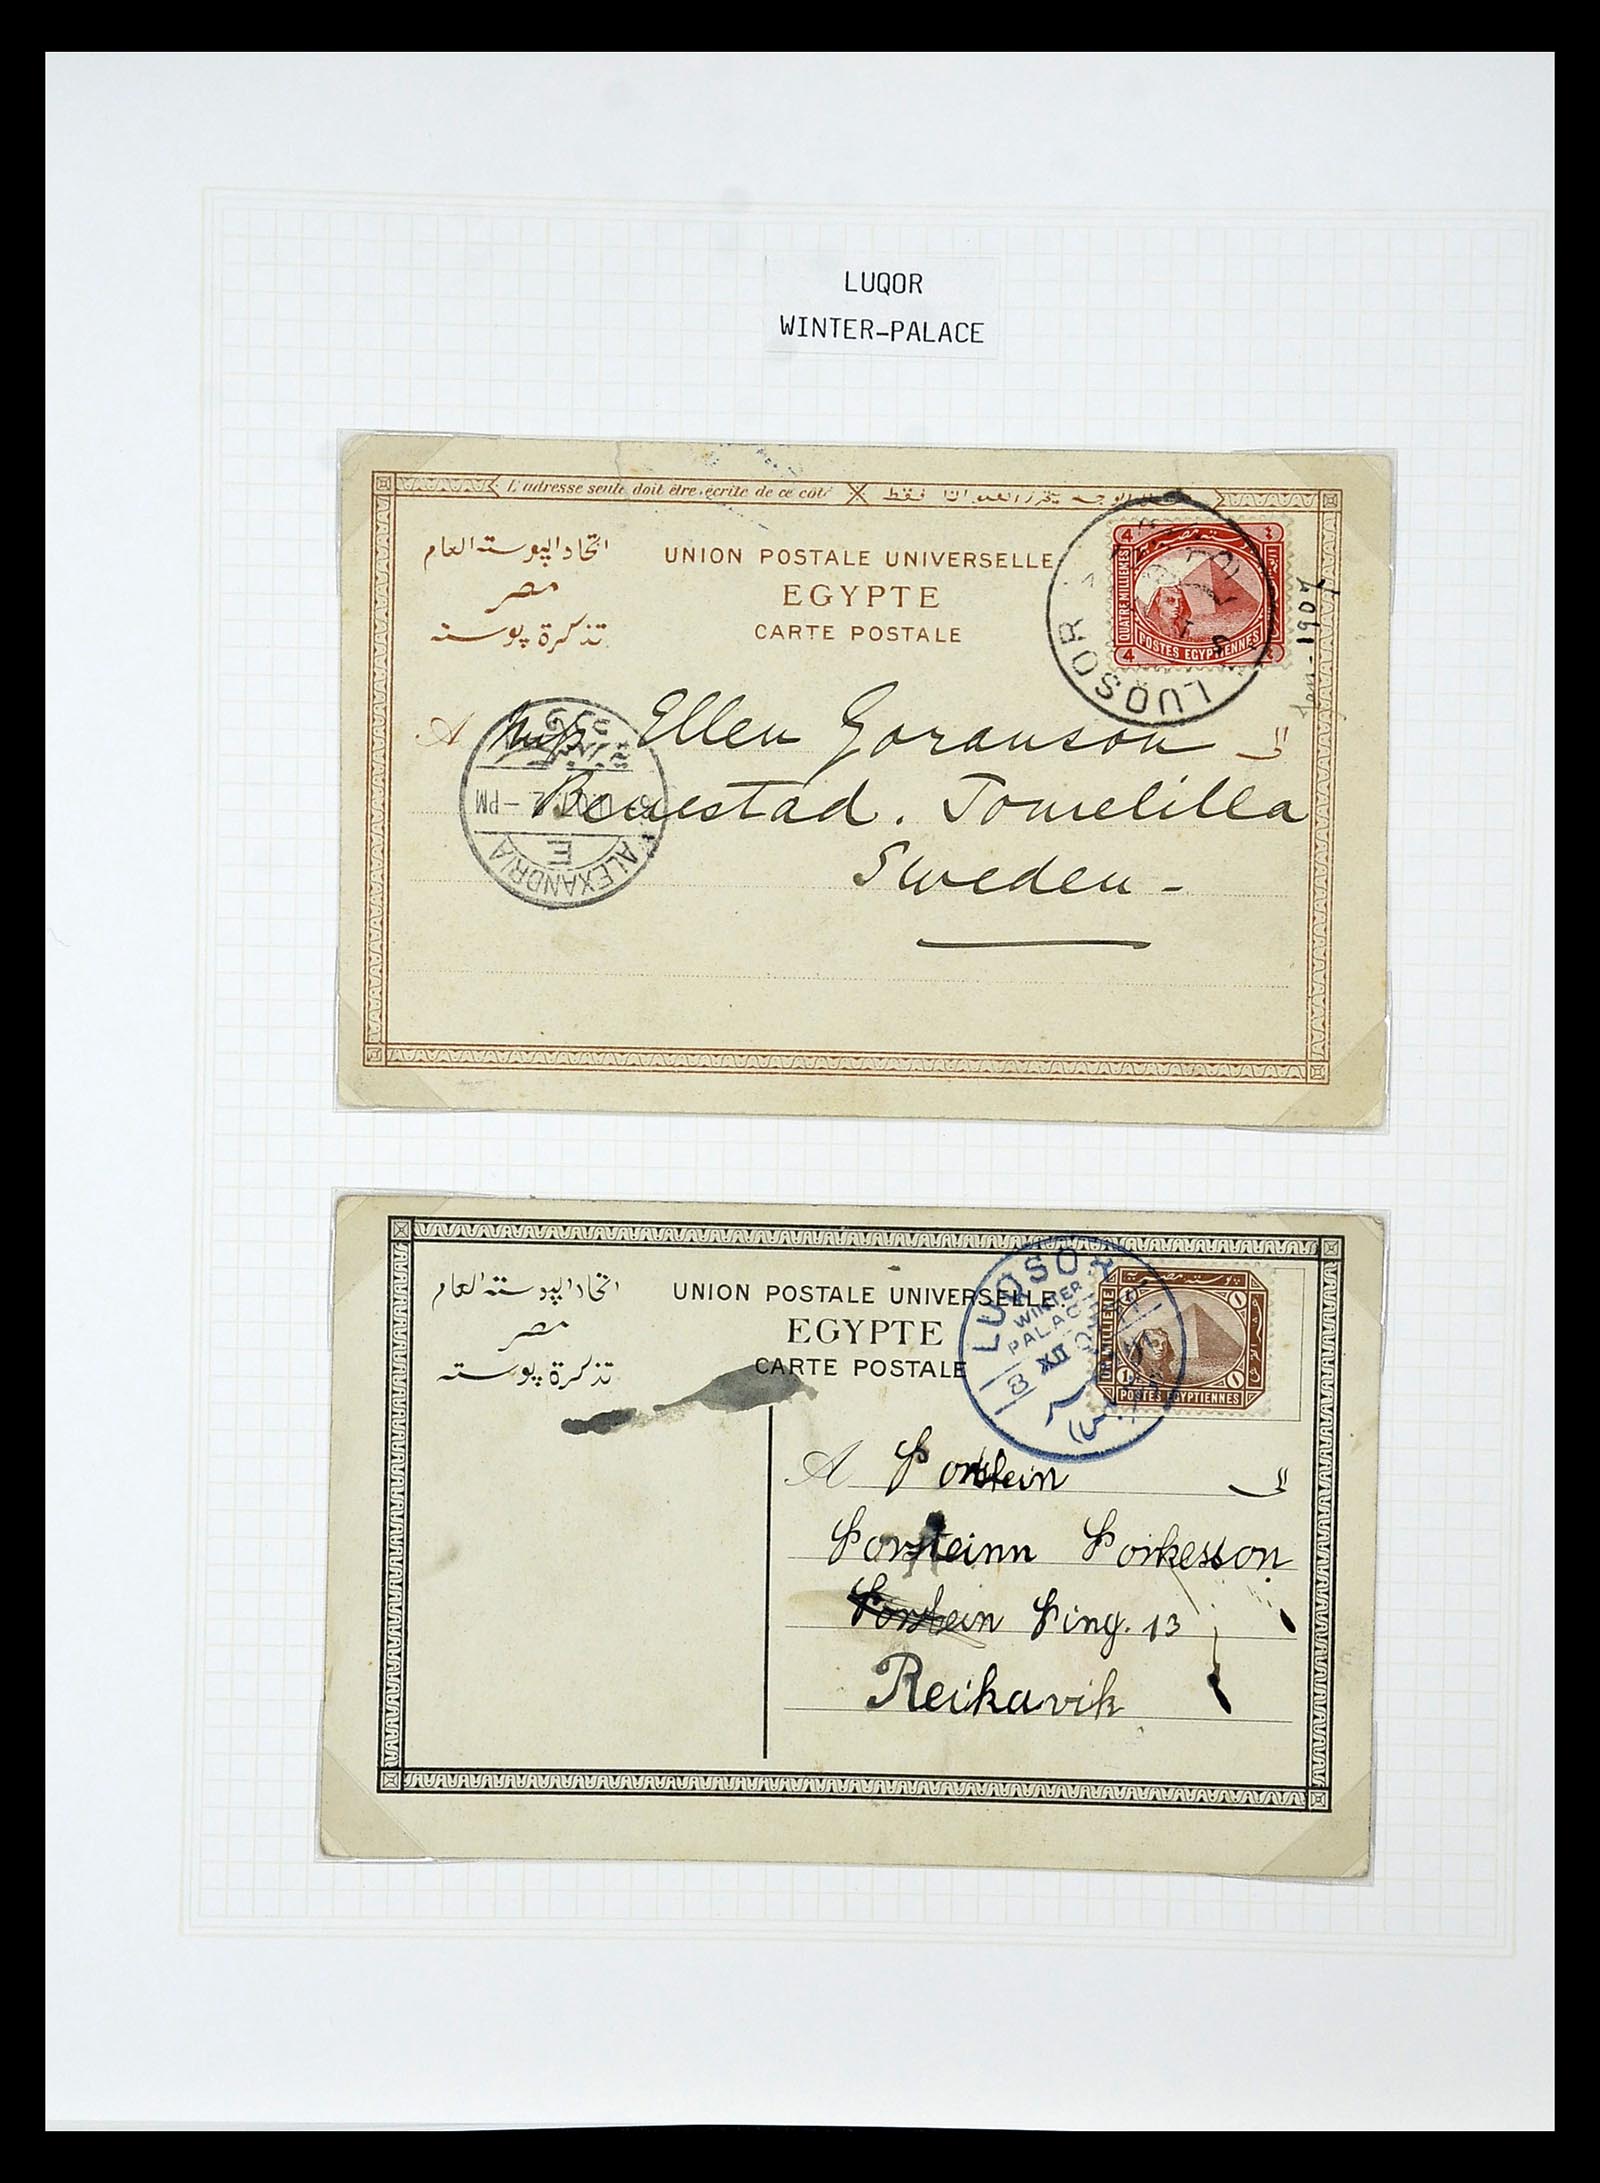 LUQOR
WINTER-PALACE
L'adresse seule doit être écrite de ce côté
UNION POSTALE UNIVERSELLE
EGYPTE
CARTE POSTALE
اتحاد البوسته العام
مصر
تذكرة بوسته
4
4
QUATRE MILLIEMES
POSTES EGYPTIENNES
LUQSOR
1907
A Miss Ellen Goranson الى
Benestad. Tomelilla
Sweden -
ALEXANDRIA
E
PM
UNION POSTALE UNIVERSELLE.
EGYPTE
CARTE POSTALE
اتحاد البوسته العام
مصر
تذكرة بوسته
LUQSOR
WINTER
PALACE
8 XII
UN MILLIEME
POSTES EGYPTIENNES
A Þorstein الى
Þorsteinn Þorkesson
Þorstein Þing. 13
Reikavik